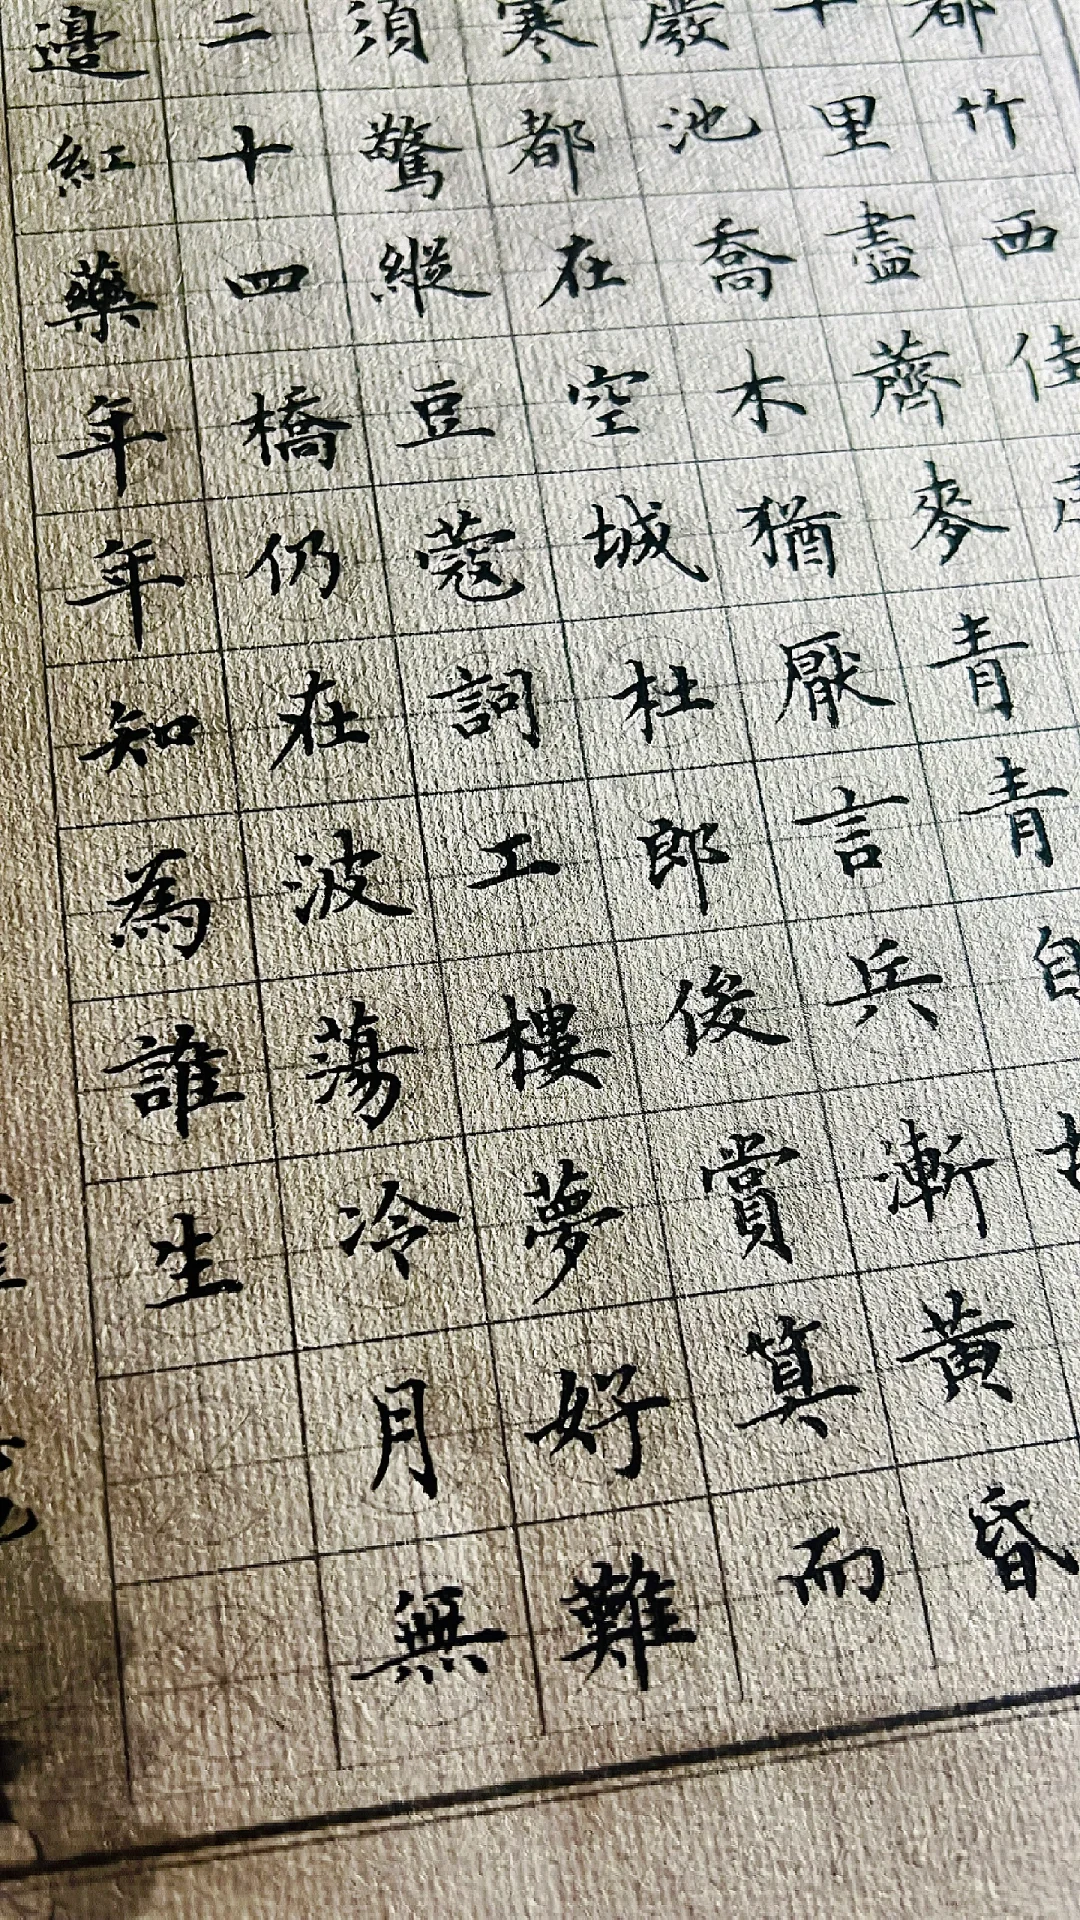 都竹西佳
十里盡薺麥青青自
廢池喬木猶厭言兵漸黃昏
寒都在空城杜郎後賞算而
須驚縱豆蔻詞工樓夢好難
二十四橋仍在波蕩冷月無
邊紅藥年年知為誰生